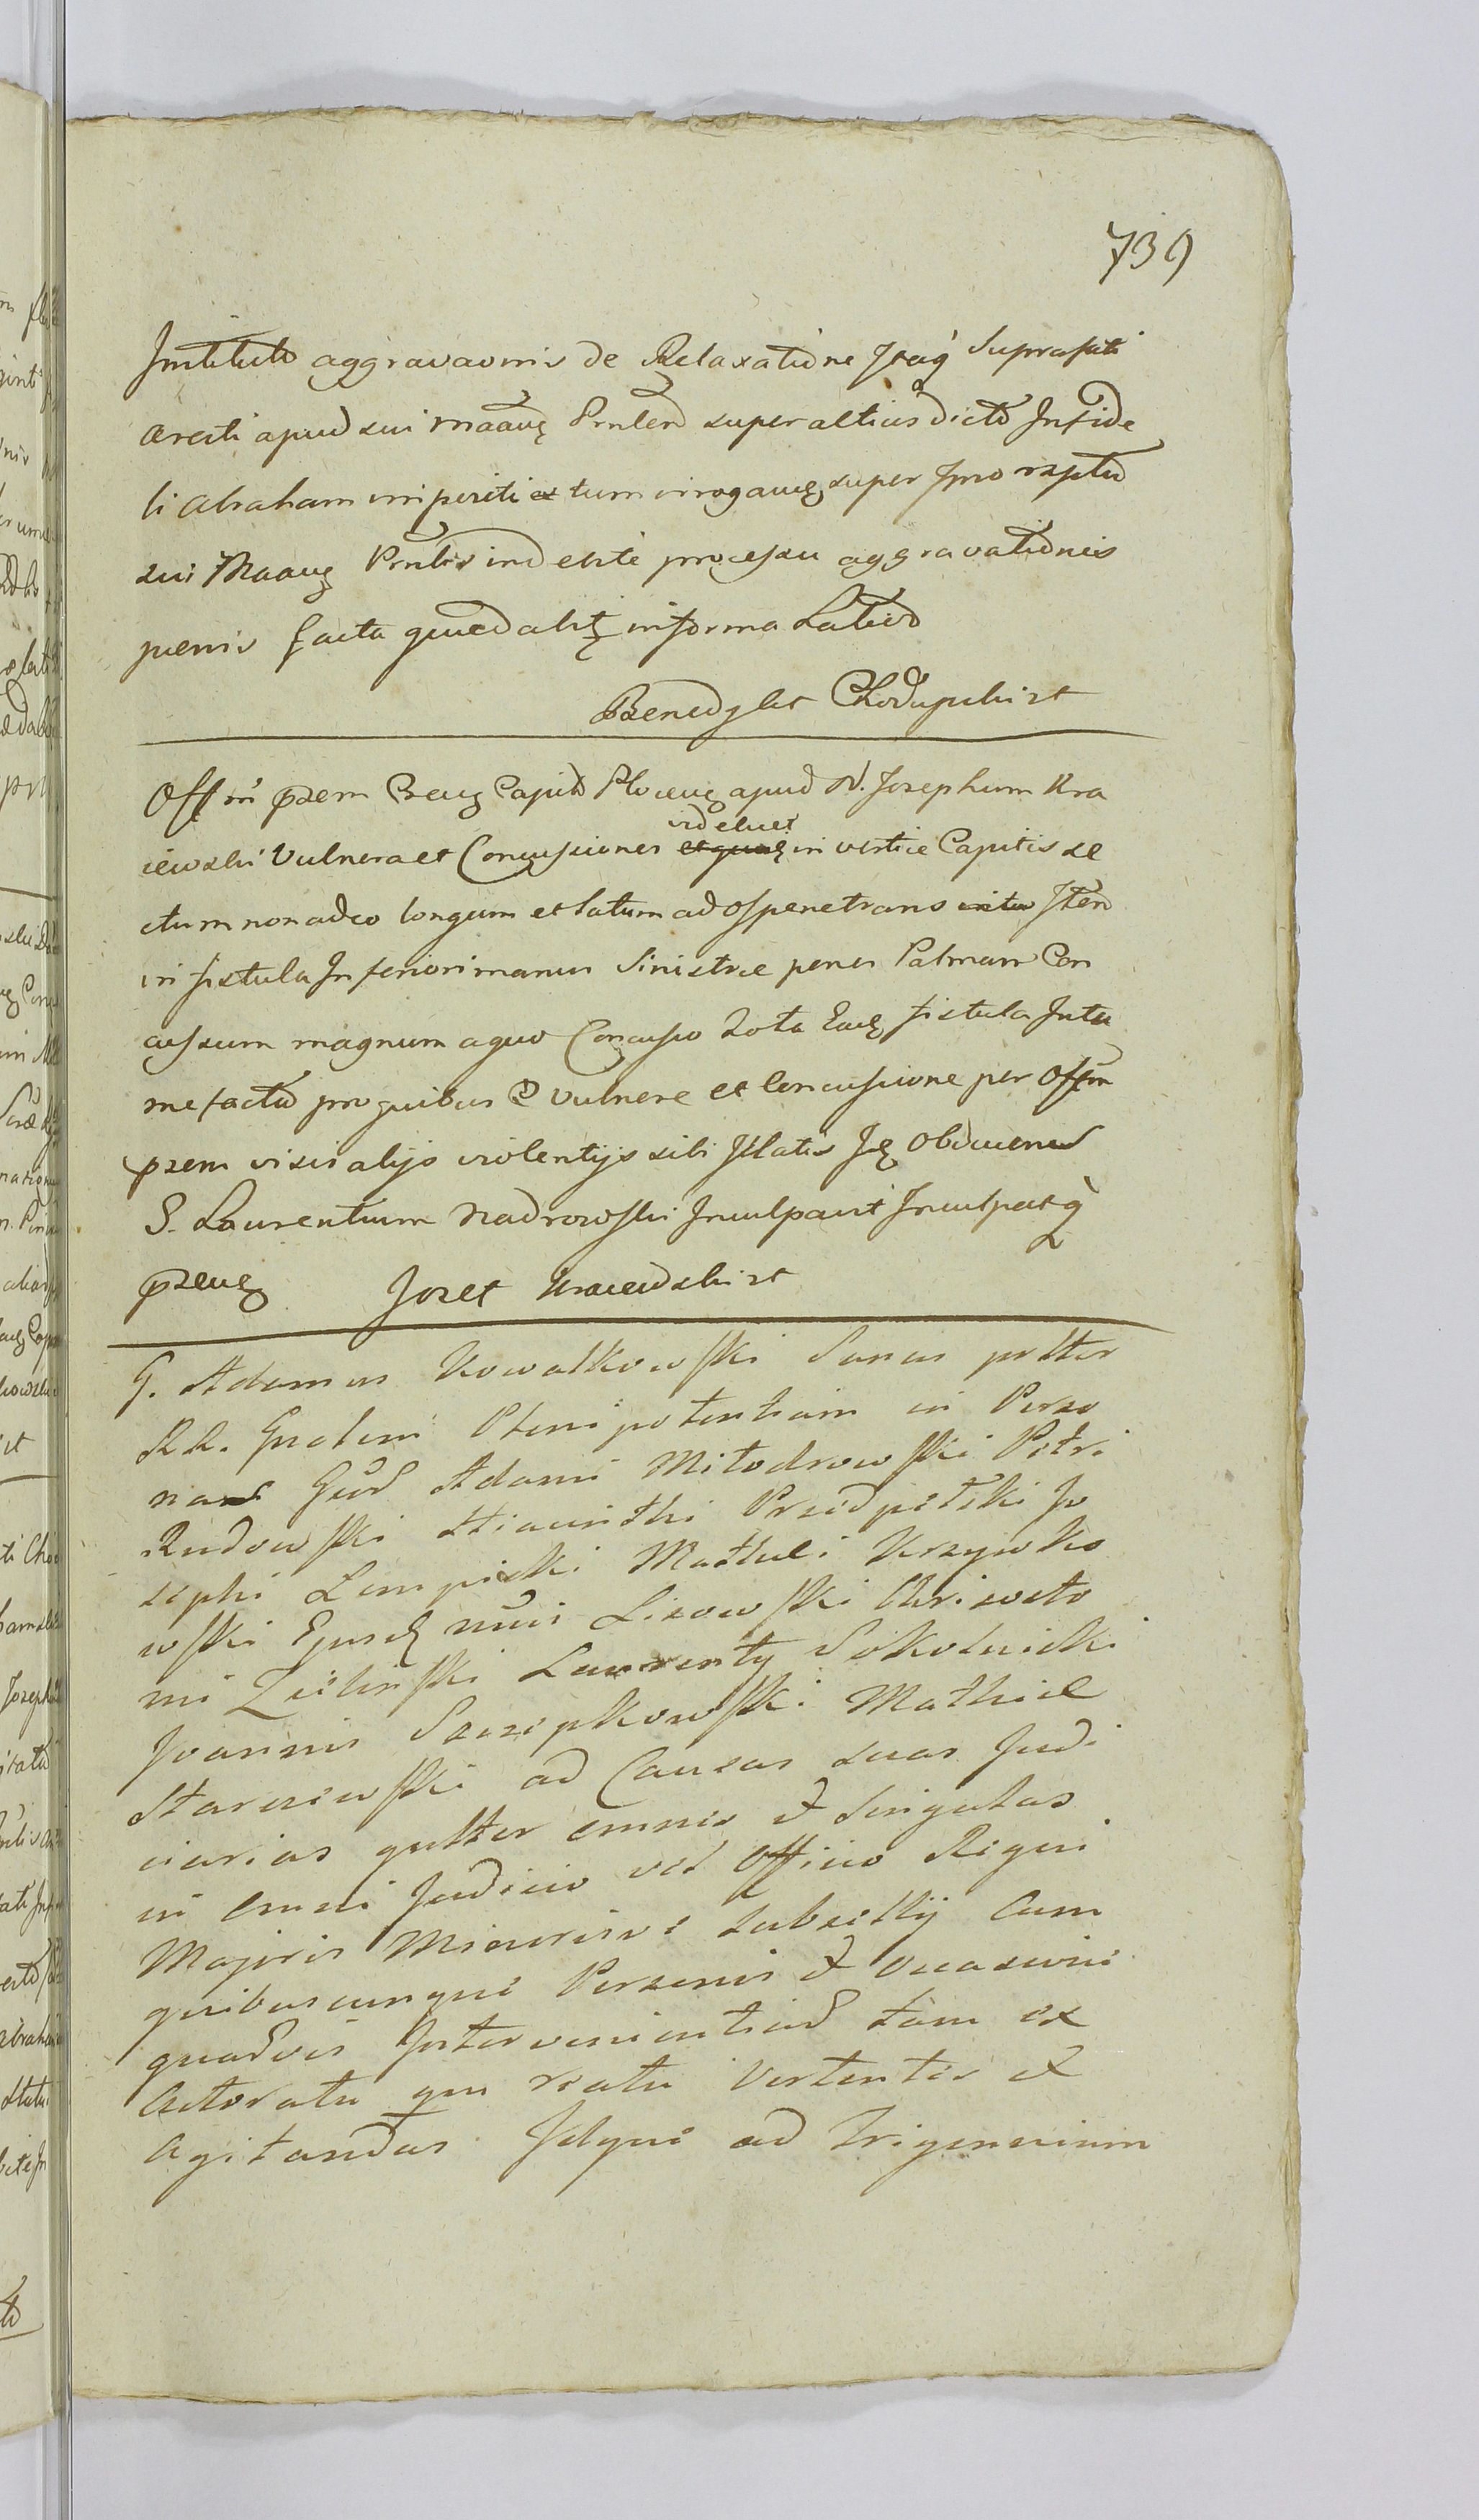 739
Institutô aggravaonis de Relaxatione Jtaq̀ Suprafati
aresti apud sui Maavę Pntend super altius dicto Infide
li Abraham impetiti tum irrogavę super Imo raptu
sui Maavę Pntis indebite processu aggravationis
penis facta qued alitę in forma Latiô
Benedykt Chodupski st
Off m̃ przem Creuę Capit Plocenę apud N. Josephum Kra
iewski Vulnera et Concussiones
videlicet
in vertice Capitis se
ctum non adeo longum et latum ad os penetrans Item
in fistula Inferiori manus Sinistræ penes Palmam Con
cussum magnum a quo Concusso Tota Eadę fistula Intu
mefacta pro quibus Vulnere et Concussione per Offm
przem visis alijs violentijs sibi Illatis Idę Obducens
G. Laurentium Nadrowski Inculpavit Inculpatq̀
przenę Jozef Kraiewski st
G. Adamus Kowalkowski Sanus prtter
RR. Gnalem Plenipotentiam in Perso
nas Gnod Adami Miłodrowski Petri
Rudowski Hiacinthi Przedpełski Jo
sephi Lempicki Mathei Krzywko
wski Ejusdę nũis Lisowski Chrisosto
mi Zielinski Laurenty Sokolnicki
Joannis Szczepkowski Mathiæ
Starczewski ad Causas suas Judi
ciarias qultter omnes et Singulas
in omni Judicio vel Officio Regni
Majoris Minorisve Subsellij Cum
quibuscunque Personis et Occasione
quadvis Intervenientiad tam ex
Actoratu qm reatu Vertentes et
Agitandas Idque ad Trigennium